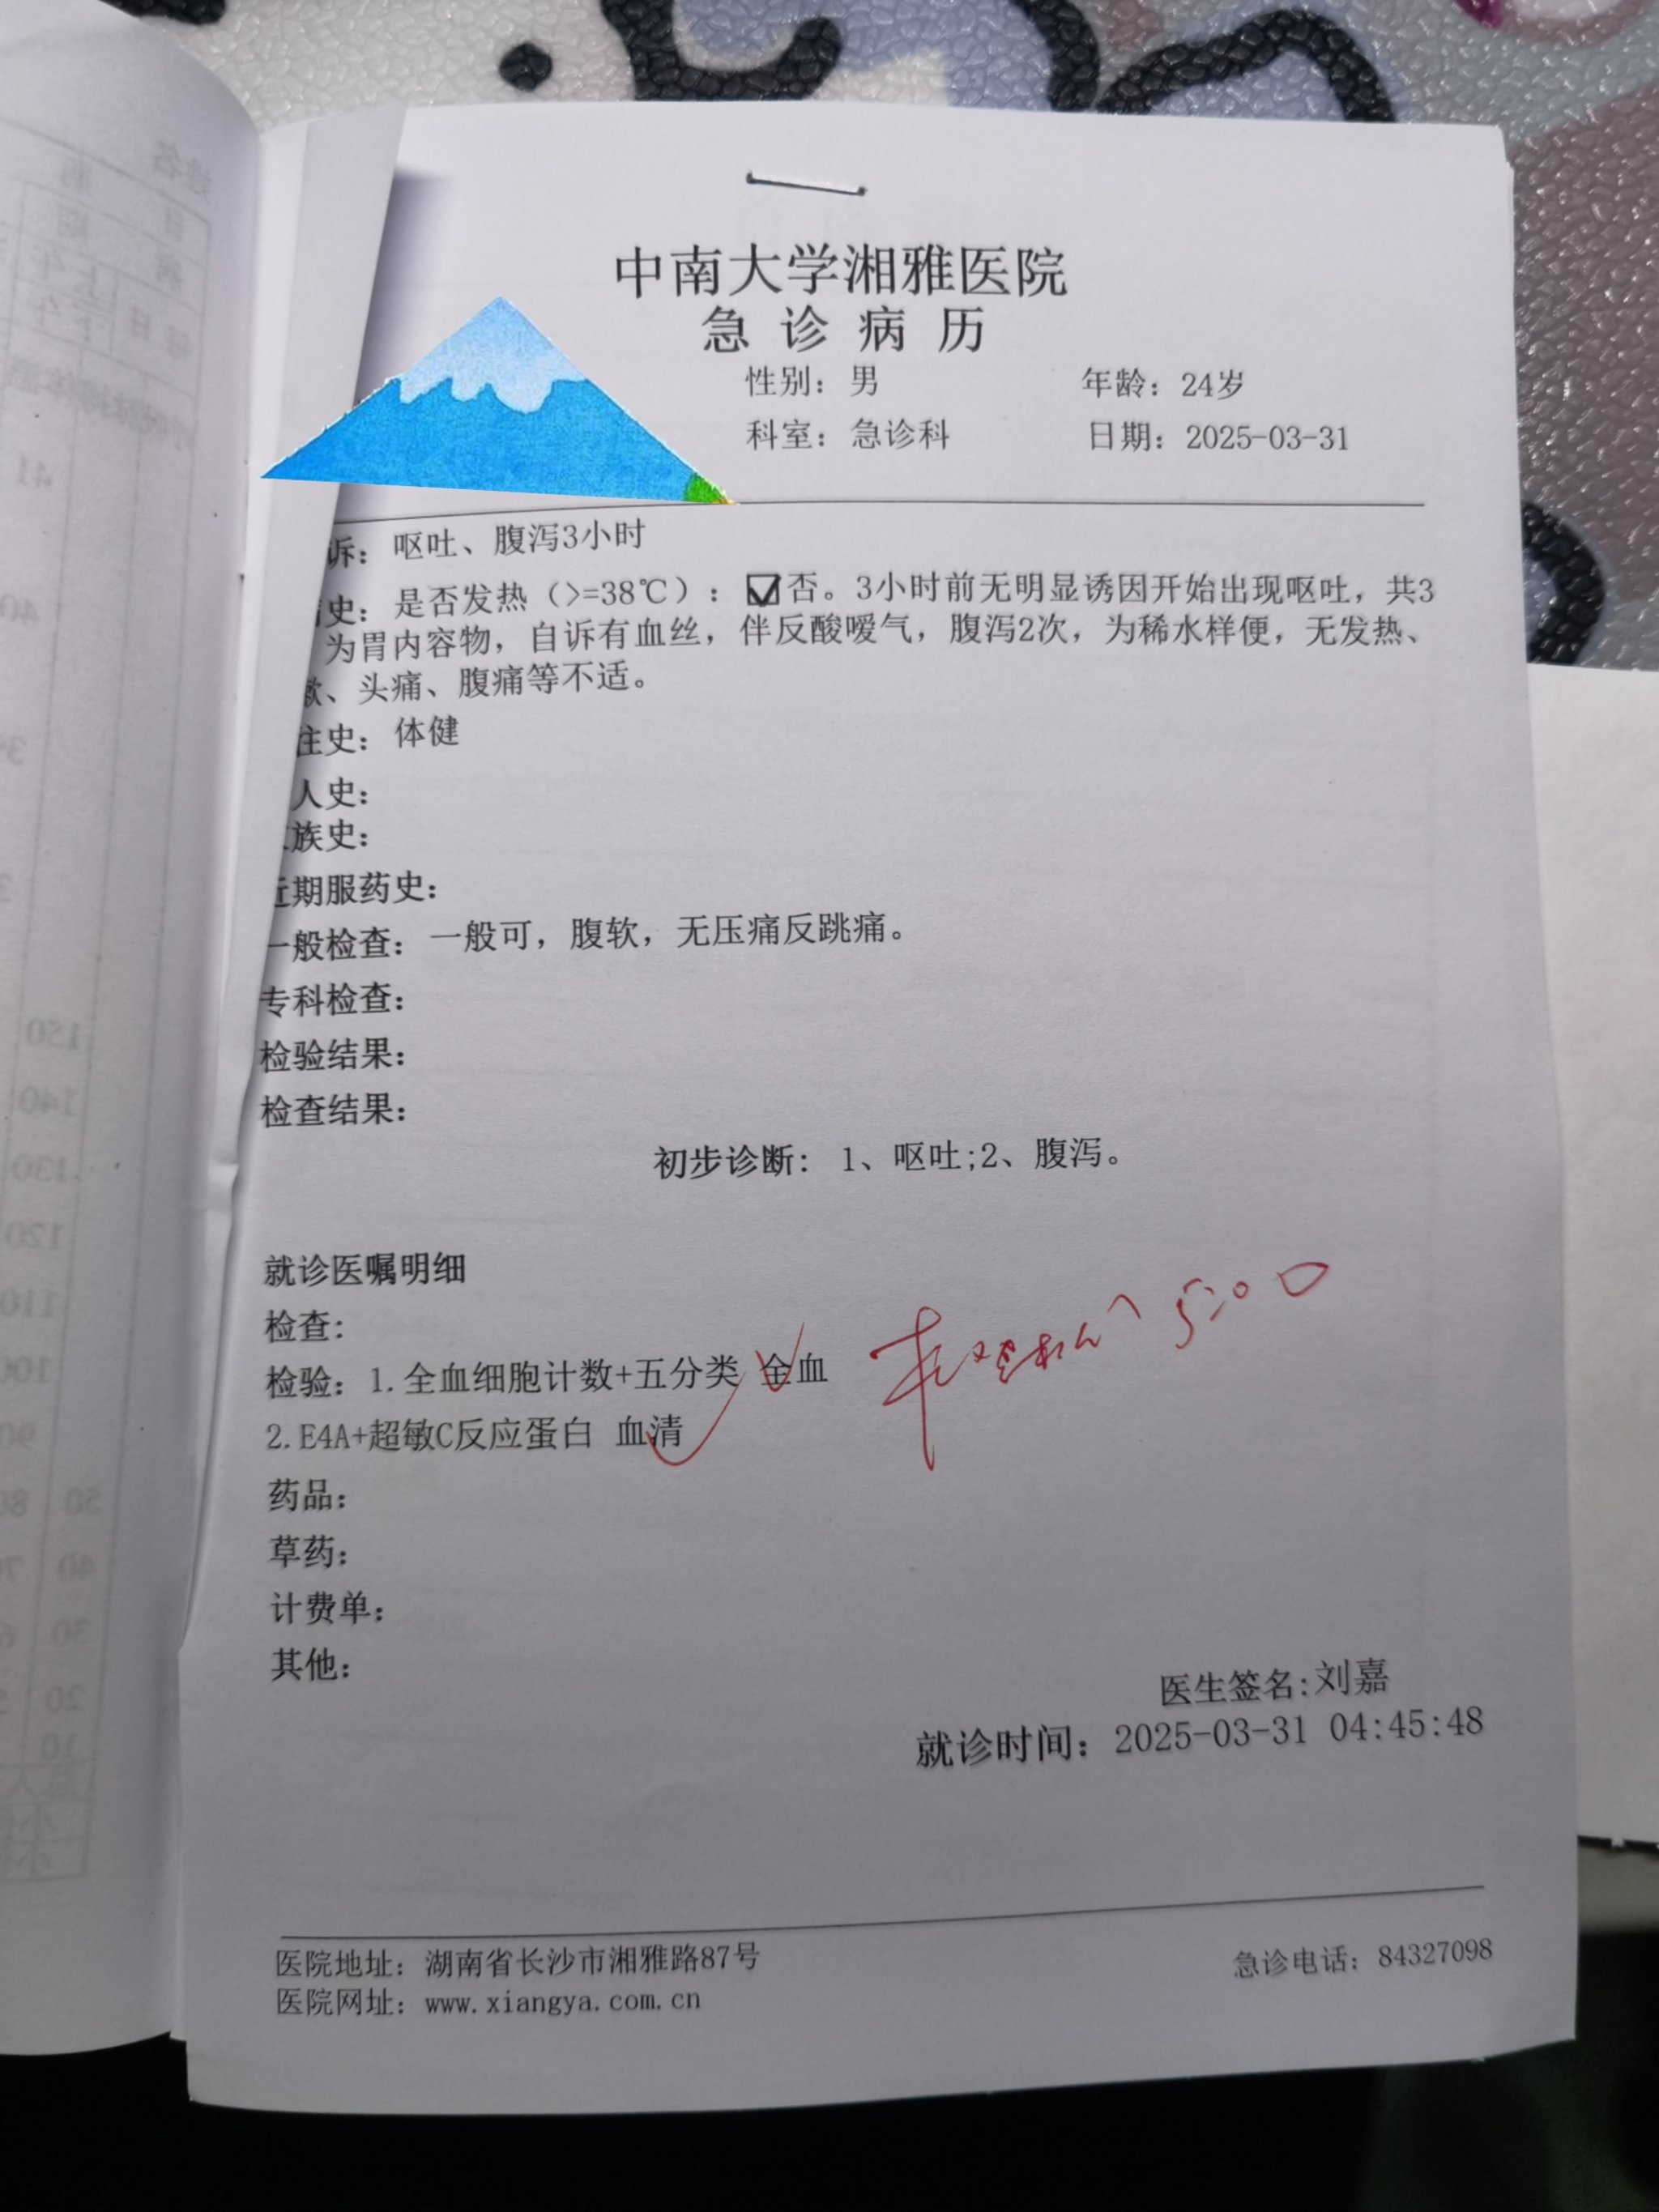 中南大学湘雅医院
急诊病历
性别：男 年龄：24岁
科室：急诊科 日期：2025-03-31
诉：呕吐、腹泻3小时
史：是否发热（>=38℃）：☑否。3小时前无明显诱因开始出现呕吐，共3
为胃内容物，自诉有血丝，伴反酸嗳气，腹泻2次，为稀水样便，无发热、
、头痛、腹痛等不适。
史：体健
人史：
族史：
近期服药史：
一般检查：一般可，腹软，无压痛反跳痛。
专科检查：
检验结果：
检查结果：
初步诊断：1、呕吐;2、腹泻。
就诊医嘱明细
检查：
检验：1.全血细胞计数+五分类 全血
5:00
2.E4A+超敏C反应蛋白 血清
药品：
草药：
计费单：
其他：
医生签名:刘嘉
就诊时间：2025-03-31 04:45:48
医院地址：湖南省长沙市湘雅路87号 急诊电话：84327098
医院网址：www.xiangya.com.cn